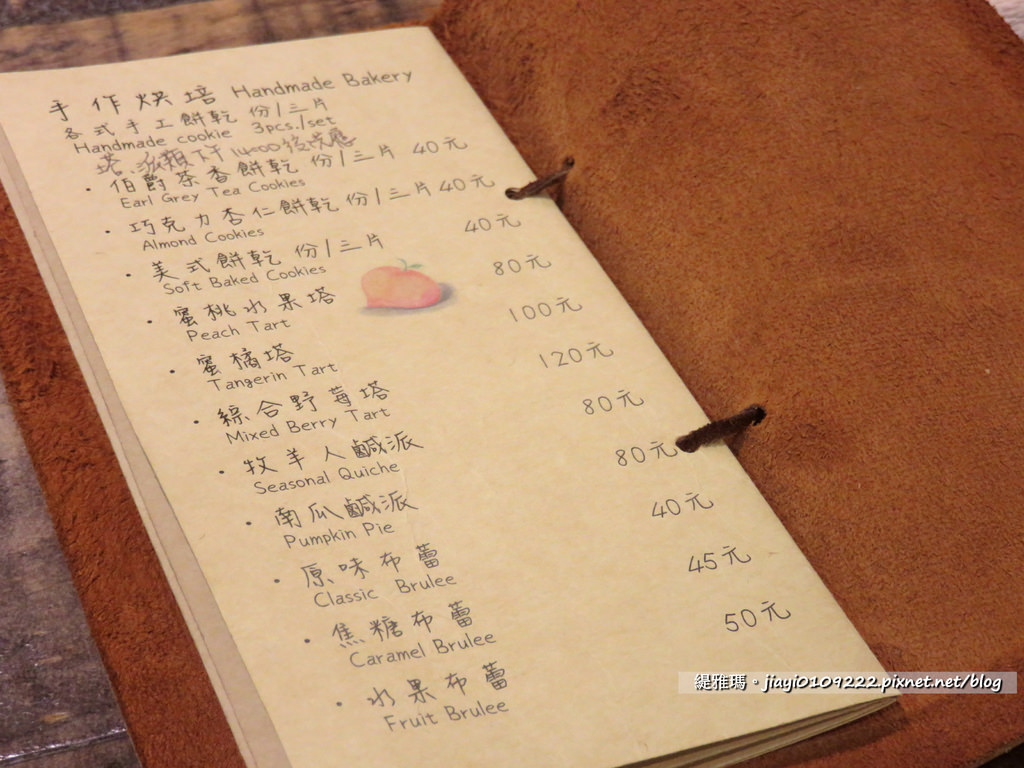 手作烘培 Handmade Bakery
各式手工餅乾 份/三片
Handmade cookie 3pcs./set
塔.派類下午14:00後供應
• 伯爵茶香餅乾 份/三片 40元
Earl Grey Tea Cookies
• 巧克力杏仁餅乾 份/三片 40元
Almond Cookies
• 美式餅乾 份/三片 40元
Soft Baked Cookies
• 蜜桃水果塔 80元
Peach Tart
• 蜜橘塔 100元
Tangerin Tart
• 綜合野莓塔 120元
Mixed Berry Tart
• 牧羊人鹹派 80元
Seasonal Quiche
• 南瓜鹹派 80元
Pumpkin Pie
• 原味布蕾 40元
Classic Brulee
• 焦糖布蕾 45元
Caramel Brulee
• 水果布蕾 50元
Fruit Brulee
緹雅瑪。jiayi0109222.pixnet.net/blog